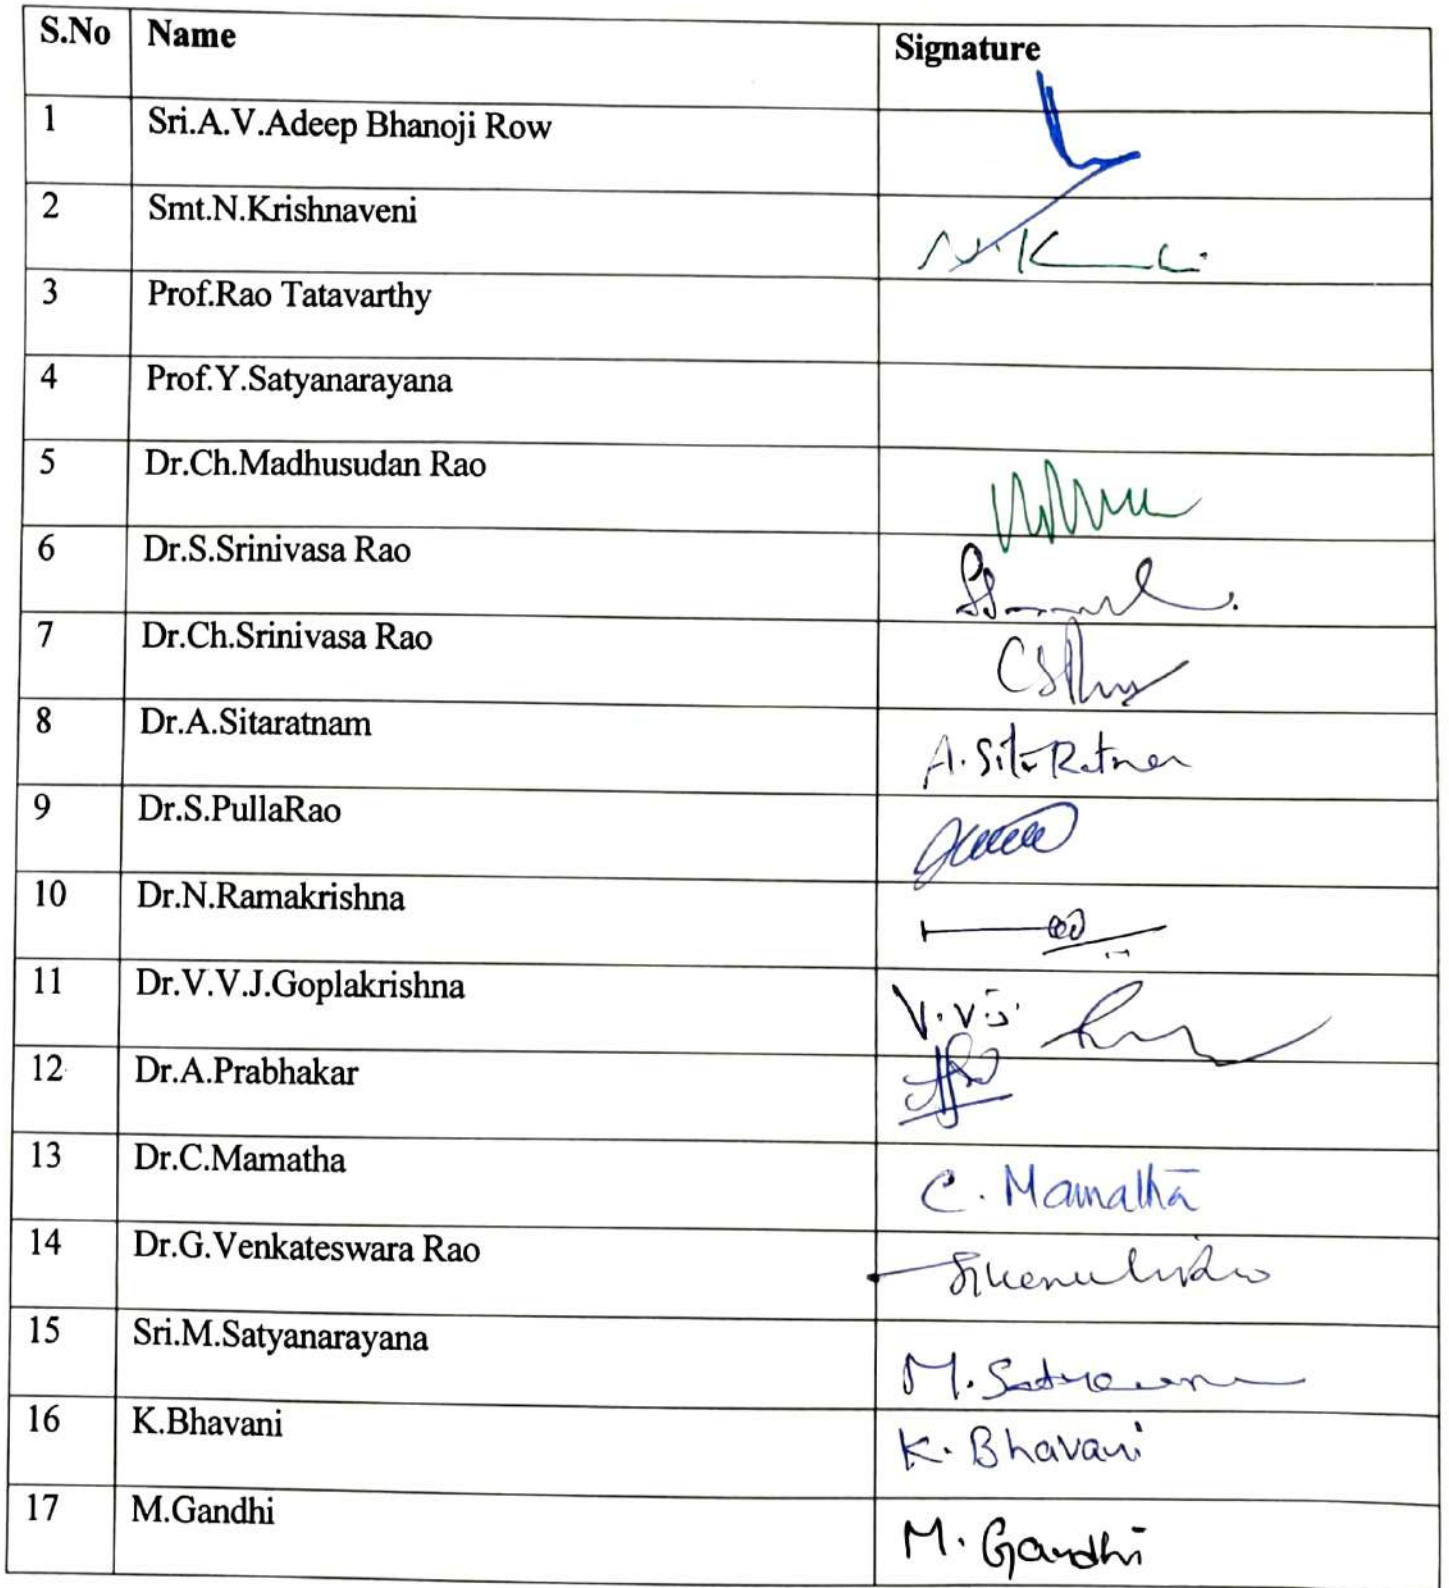 S.No Name Signature
1 Sri.A.V.Adeep Bhanoji Row
2 Smt.N.Krishnaveni
3 Prof.Rao Tatavarthy
4 Prof.Y.Satyanarayana
5 Dr.Ch.Madhusudan Rao
6 Dr.S.Srinivasa Rao
7 Dr.Ch.Srinivasa Rao
8 Dr.A.Sitaratnam
9 Dr.S.PullaRao
10 Dr.N.Ramakrishna
11 Dr.V.V.J.Goplakrishna V.V.J.
12 Dr.A.Prabhakar
13 Dr.C.Mamatha C. Mamatha
14 Dr.G.Venkateswara Rao
15 Sri.M.Satyanarayana M.
16 K.Bhavani K. Bhavani
17 M.Gandhi M. Gandhi